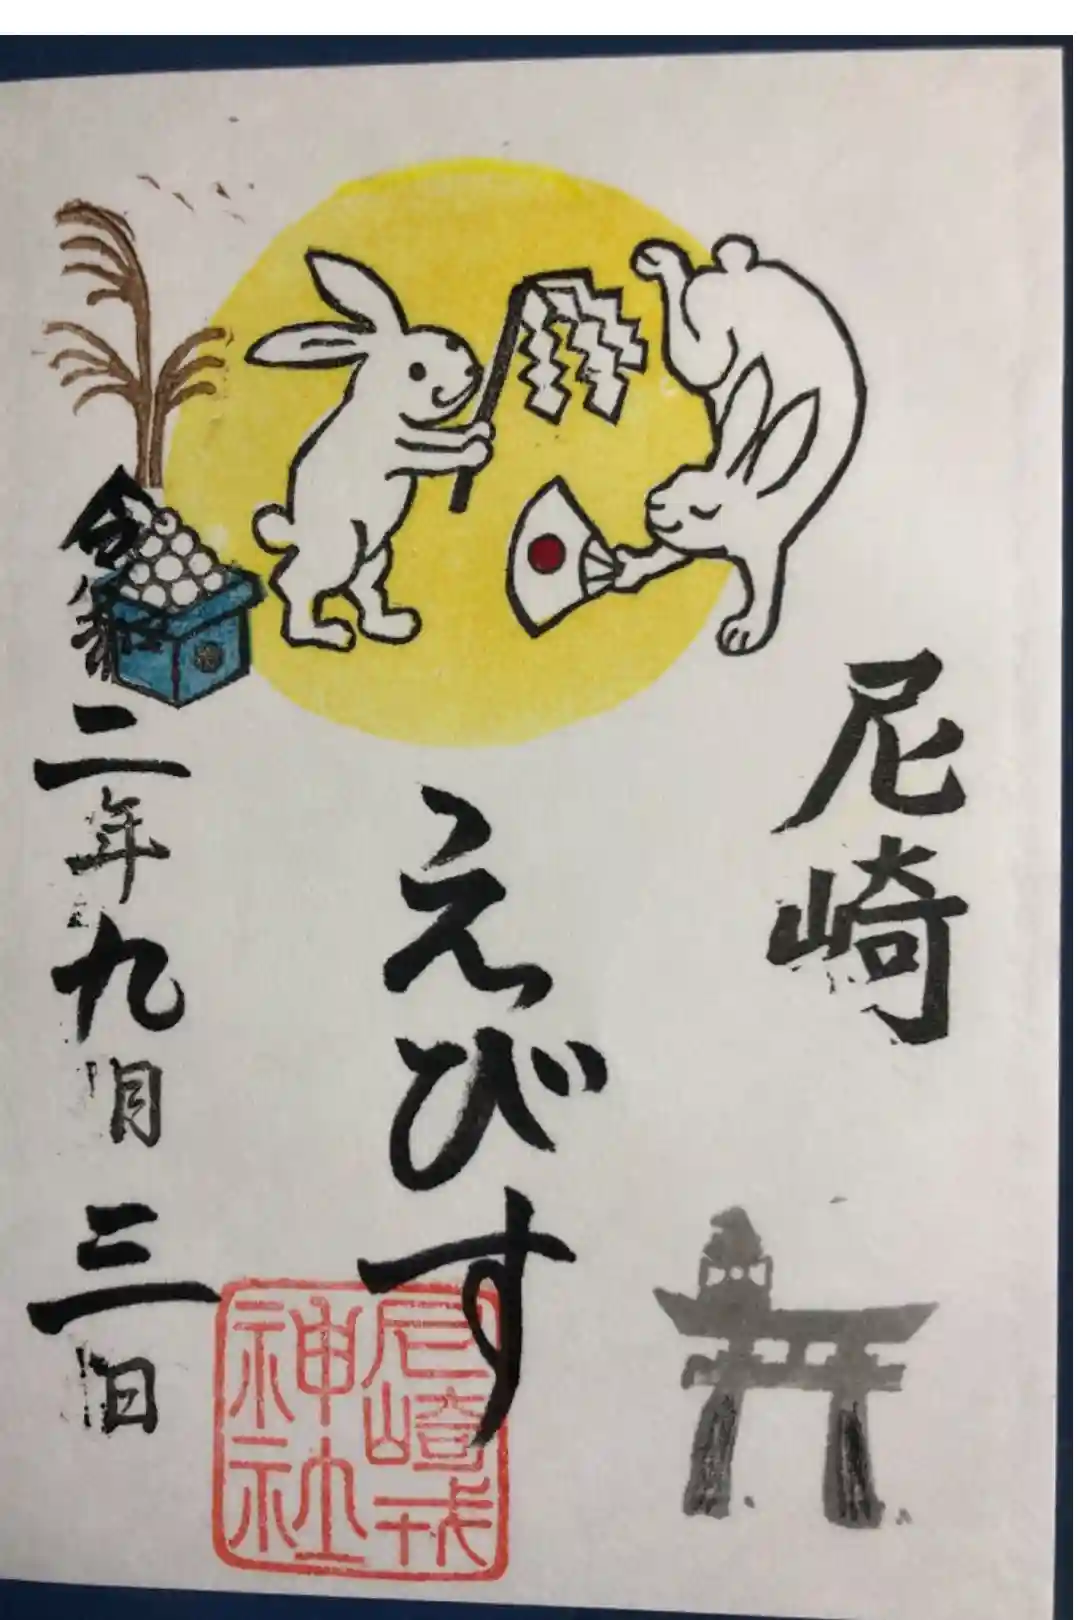 尼崎
えびす
尼崎戎
神社
令和二年九月三日